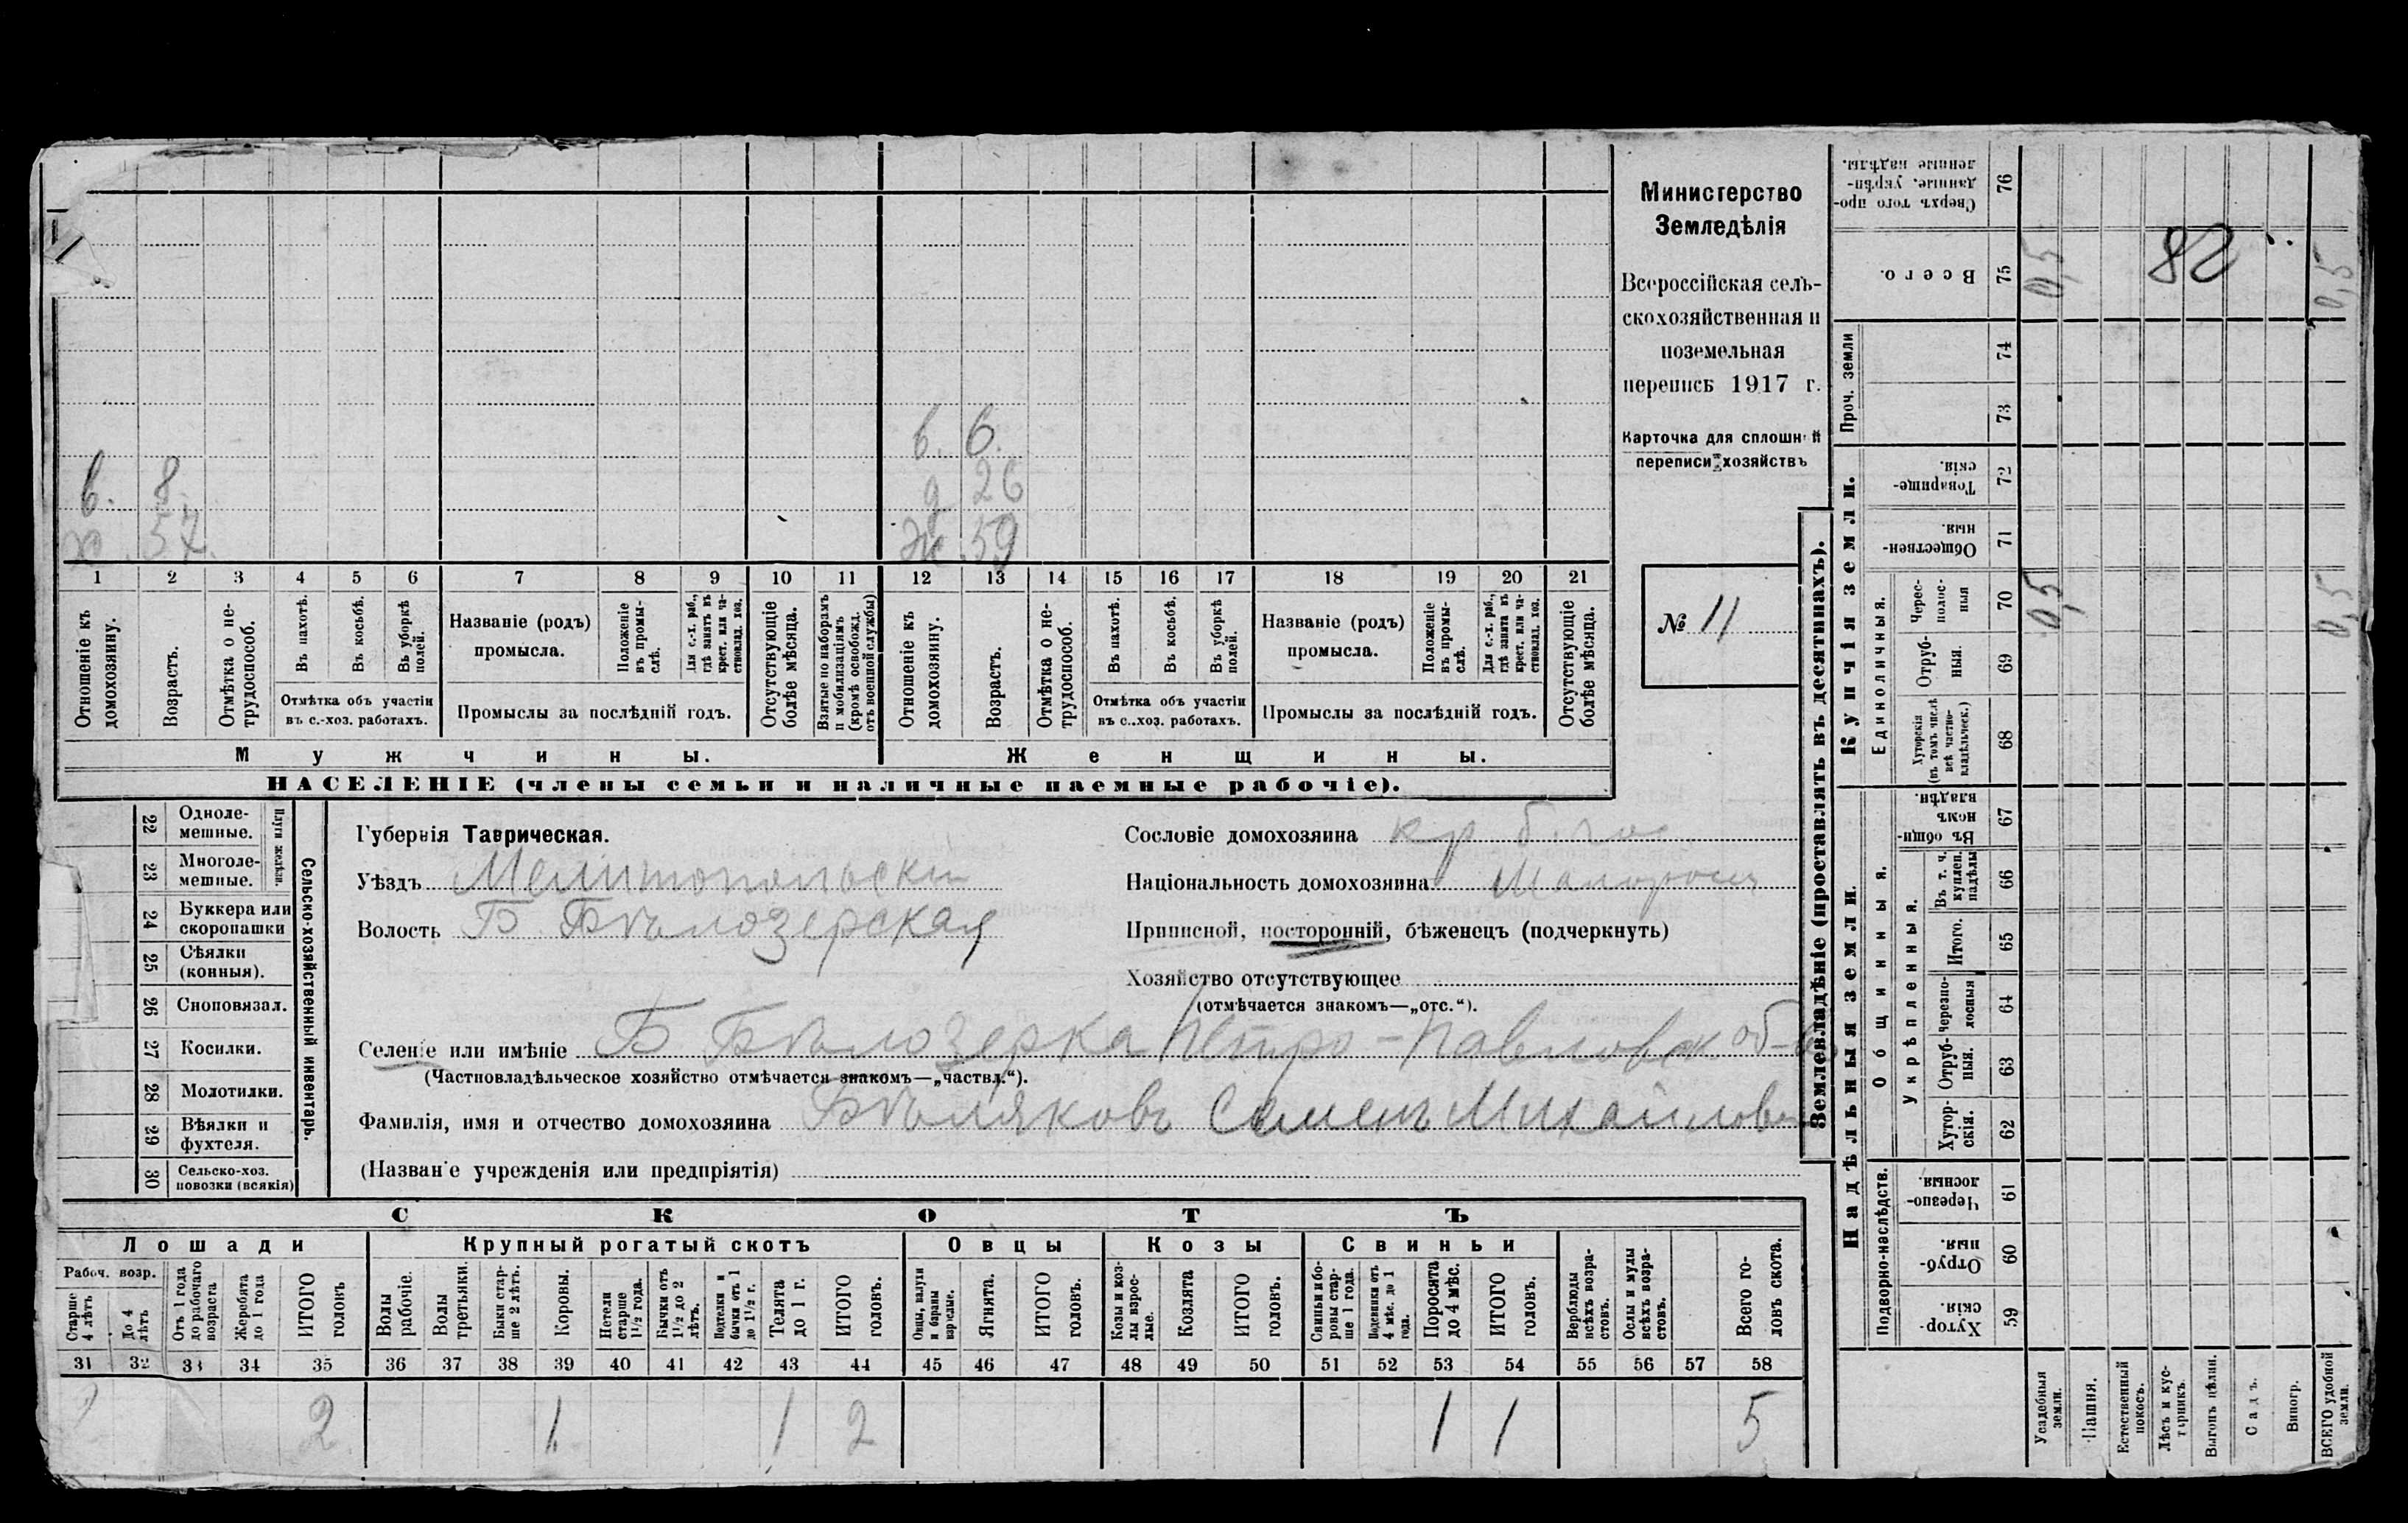 в. 6.
в. 8. д 26
х. 57. ж. 59
1 2 3 4 5 6 7 8 9 10 11 12 13 14 15 16 17 18 19 20 21
Отношеніе къ домохозяину.
Возрастъ.
Отмѣтка о не-трудоспособ.
Въ пахотѣ.
Въ косьбѣ.
Въ уборкѣ полей.
Отмѣтка объ участіи
въ с.-хоз. работахъ.
Названіе (родъ)
промысла.
Положеніе въ промы-слѣ.
Для с.-х. раб., гдѣ занятъ въ крест. или ча-стновлад. хоз.
Промыслы за послѣдній годъ.
Отсутствующіе болѣе мѣсяца.
Взятые по наборамъ и мобилизаціямъ (кромѣ освобожд. отъ военной службы)
Отношеніе къ домохозяину.
Возрастъ.
Отмѣтка о не-трудоспособ.
Въ пахотѣ.
Въ косьбѣ.
Въ уборкѣ полей.
Отмѣтка объ участіи
въ с.-хоз. работахъ.
Названіе (родъ)
промысла.
Положеніе въ промы-слѣ.
Для с.-х. раб., гдѣ занята въ крест. или ча-стновлад. хоз.
Промыслы за послѣдній годъ.
Отсутствующіе болѣе мѣсяца.
Мужчины. Женщины.
НАСЕЛЕНІЕ (члены семьи и наличные наемные рабочіе).
Министерство
Земледѣлія
Всероссійская сель-
скохозяйственная и
поземельная
перепись 1917 г.
Карточка для сплошной
переписи хозяйствъ
№ 11
22 Одноле-мешные.
23 Многоле-мешные.
Плуги желѣзн.
24 Буккера или скоропашки
25 Сѣялки (конныя).
26 Сноповязал.
27 Косилки.
28 Молотилки.
29 Вѣялки и фухтеля.
30 Сельско-хоз. повозки (всякія)
Сельско-хозяйственный инвентарь.
Губернія Таврическая.
Уѣздъ Мелитопольскій
Волость Б. Бѣлозерская
Сословіе домохозяина кр.
Національность домохозяина Малоросс
Приписной, посторонній, бѣженецъ (подчеркнуть)
Хозяйство отсутствующее
(отмѣчается знакомъ—„отс.“).
Селеніе или имѣніе Б Бѣлозерка Петро-Павловск. об-
(Частновладѣльческое хозяйство отмѣчается знакомъ—„частвл.“).
Фамилія, имя и отчество домохозяина Бѣляковъ Семенъ Михайлов
(Названіе учрежденія или предпріятія)
СКОТЪ
Лошади Крупный рогатый скотъ Овцы Козы Свиньи
Рабоч. возр.
Старше 4 лѣтъ
До 4 лѣтъ
Отъ 1 года до рабочаго возраста
Жеребята до 1 года
ИТОГО головъ
Волы рабочіе.
Волы третьяки.
Быки стар-ше 2 лѣтъ.
Коровы.
Нетели старше 1½ года.
Бычки отъ 1½ до 2 лѣтъ.
Подтелки и бычки отъ 1 до 1½ г.
Телята до 1 г.
ИТОГО головъ.
Овцы, валухи и бараны взрослые.
Ягнята.
ИТОГО головъ.
Козы и коз-лы взрос-лые.
Козлята
ИТОГО головъ.
Свиньи и бо-ровы стар-ше 1 года.
Подсвинки отъ 4 мѣс. до 1 года.
Поросята до 4 мѣс.
ИТОГО головъ.
Верблюды всѣхъ возра-стовъ.
Ослы и мулы всѣхъ возра-стовъ.
Всего го-ловъ скота.
31 32 33 34 35 36 37 38 39 40 41 42 43 44 45 46 47 48 49 50 51 52 53 54 55 56 57 58
2 1 1 2 1 1 5
Землевладѣніе (проставлять въ десятинахъ).
Сверхъ того про-данные, укрѣп-ленные надѣлы. 76
Всего. 75 0,5 82 0,5
Проч. земли 74
73
Купчія земли.
Товарище-скія. 72
Обществен-ныя. 71
Единоличныя.
Черес-полос-ныя 70 0,5 0,5
Отруб-ныя. 69
Хуторскія (въ томъ числѣ всѣ частно-владѣльческ.) 68
Надѣльныя земли.
Общинныя.
Въ общин-номъ владѣн. 67
Укрѣпленныя.
Въ т. ч. куплен. надѣлы 66
Итого. 65
Черезпо-лосныя 64
Отруб-ныя. 63
Хутор-скія. 62
Подворно-наслѣдств.
Черезпо-лосныя. 61
Отруб-ныя. 60
Хутор-скія. 59
Усадебныя земли.
Пашня.
Естественный покосъ.
Лѣсъ и кус-тарникъ.
Выгонъ цѣлин.
Садъ.
Виногр.
ВСЕГО удобной земли.